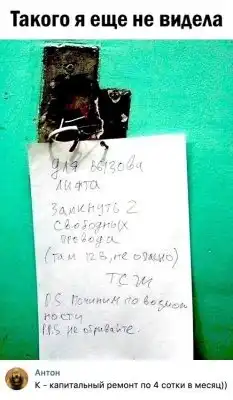 Такого я еще не видела
Для вызова
лифта
замкнуть 2
свободных
провода
(там 12В, не опасно)
ТСЖ
P.S. Починим по возмож
ности
P.S. не обрывайте.
Антон
К - капитальный ремонт по 4 сотки в месяц))